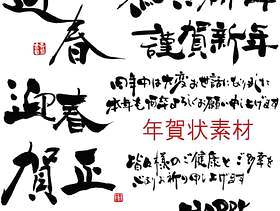 迎春
謹賀新年
旧年中は大変お世話になりました
本年も何卒よろしくお願い申し上げます
迎春
年賀状素材
賀正
皆々様のご健康とご多幸を
心よりお祈り申し上げます
HAPPY